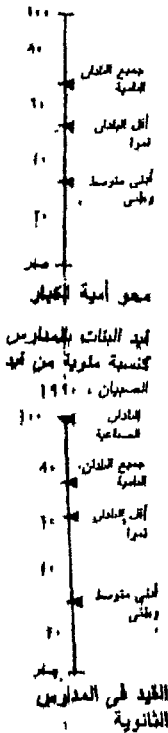 ١٠٠
٨٠
جميع البلدان
النامية
٦٠
أقل البلدان
نموا
٤٠
أدنى متوسط
وطنى
٢٠
صفر
محو أمية الكبار
قيد البنات بالمدارس
كنسبة مئوية من قيد
الصبيان ، ١٩٩٠
١٠٠
البلدان
الصناعية
جميع البلدان
النامية
٨٠
أقل البلدان
نموا
٦٠
٤٠
أدنى متوسط
وطنى
٢٠
صفر
القيد فى المدارس
الثانوية